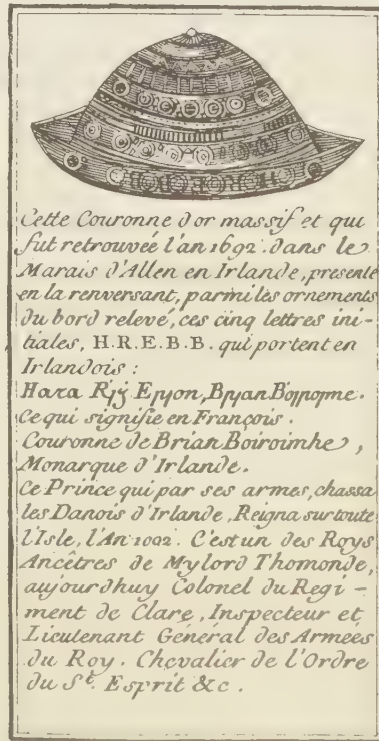 Cette Couronne d'or massif et qui
fut retrouvée l'an 1692. dans le
Marais d'Allen en Irlande, presente
en la renversant, parmi les ornements
du bord relevé, ces cinq lettres ini-
tiales, H.R.E.B.B. qui portent en
Irlandois :
Hara Rįÿ Eppon, Bpyan Boppopme.
Ce qui signifie en François.
Couronne de Brian Boiroimhe,
Monarque d'Irlande.
Ce Prince qui par ses armes, chassa
les Danois d'Irlande, Reigna sur toute
l'Isle, l'An 1002. C'est un des Roys
Ancêtres de Mylord Thomonde,
aujourdhuy Colonel du Regi-
ment de Clare, Inspecteur et
Lieutenant Général des Armées
du Roy. Chevalier de l'Ordre
du St. Esprit &c.